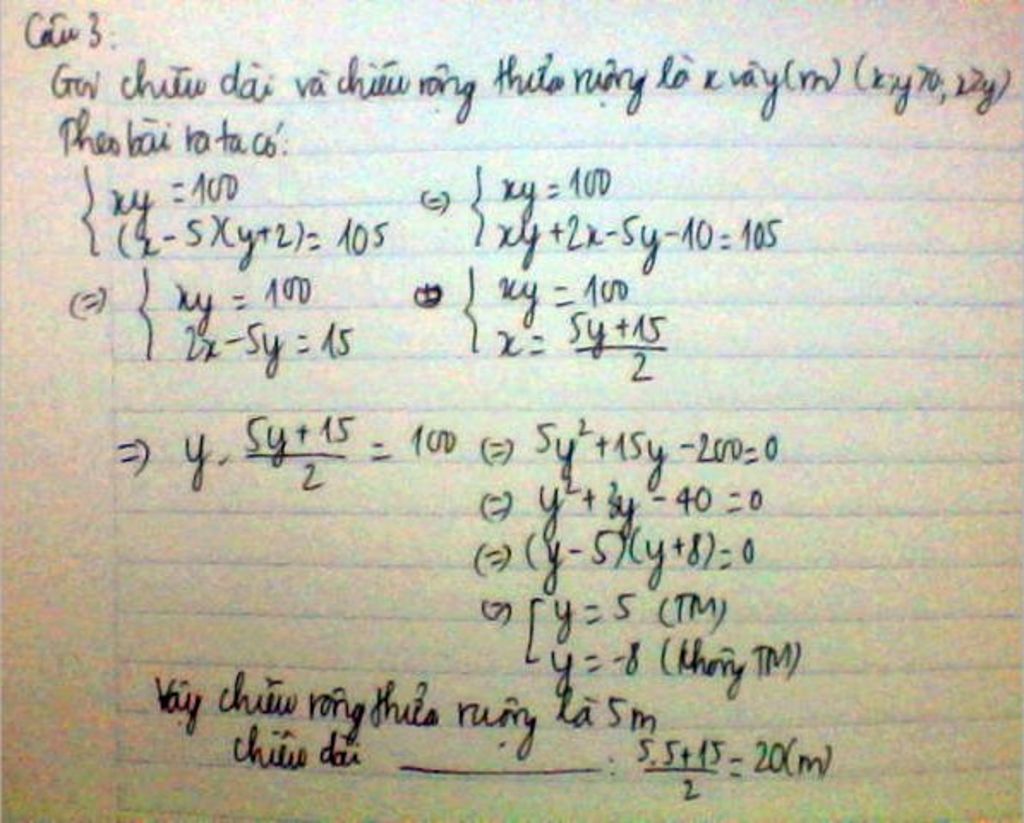 Câu 3:
Gọi chiều dài và chiều rộng thửa ruộng là x và y (m) (x;y>0, x>y)
Theo bài ra ta có:
{ xy = 100 (=) { xy = 100
{ (x-5)(y+2) = 105 { xy+2x-5y-10=105
(=) { xy = 100 (=) { xy = 100
{ 2x-5y = 15 { x = (5y+15)/2
=> y . (5y+15)/2 = 100 (=) 5y²+15y-200=0
(=) y²+3y-40=0
(=) (y-5)(y+8)=0
(=) [ y = 5 (TM)
[ y = -8 (không TM)
Vậy chiều rộng thửa ruộng là 5m
chiều dài ________ : (5.5+15)/2 = 20(m)